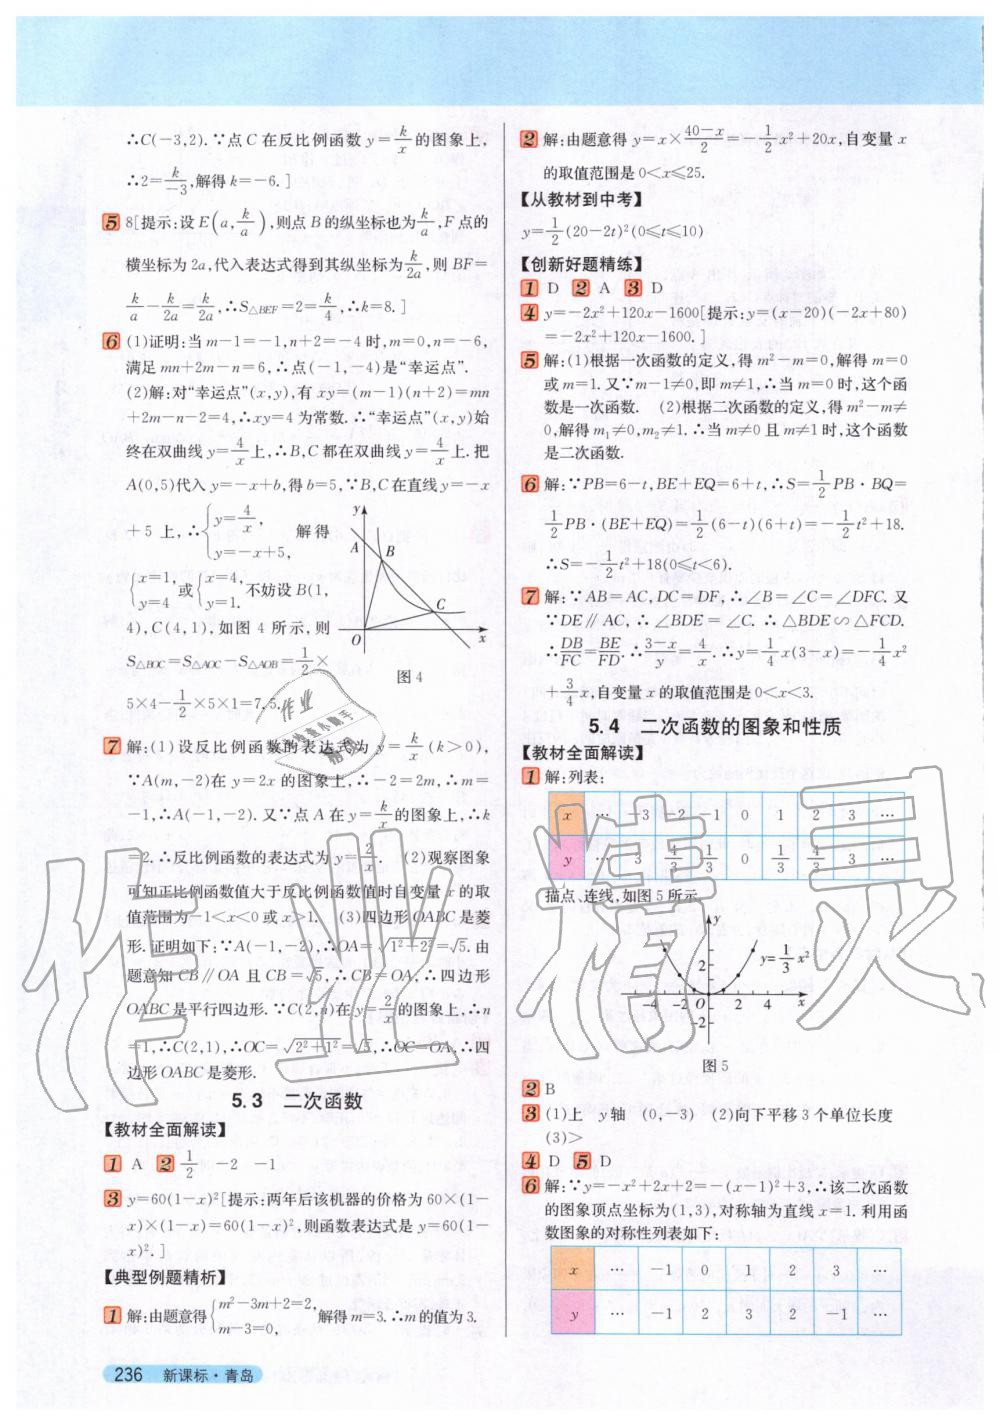 ∴C(-3,2).∵点C在反比例函数y=k/x的图象上,
∴2=k/-3,解得k=-6.]
5 8[提示:设E(a,k/a),则点B的纵坐标也为k/a,F点的
横坐标为2a,代入表达式得到其纵坐标为k/2a,则BF=
k/a-k/2a=k/2a,∴S△BEF=2=k/4,∴k=8.]
6 (1)证明:当m-1=-1,n+2=-4时,m=0,n=-6,
满足mn+2m-n=6,∴点(-1,-4)是“幸运点”.
(2)解:对“幸运点”(x,y),有xy=(m-1)(n+2)=mn
+2m-n-2=4,∴xy=4为常数.∴“幸运点”(x,y)始
终在双曲线y=4/x上,∴B,C都在双曲线y=4/x上.把
A(0,5)代入y=-x+b,得b=5,∵B,C在直线y=-x
+5上,∴{y=4/x, y=-x+5, 解得
{x=1, y=4 或{x=4, y=1. 不妨设B(1,
4),C(4,1),如图4所示,则
S△BOC=S△AOC-S△AOB=1/2×
5×4-1/2×5×1=7.5.
y A B C O x
图4
7 解:(1)设反比例函数的表达式为y=k/x(k>0),
∵A(m,-2)在y=2x的图象上,∴-2=2m,∴m=
-1,∴A(-1,-2).又∵点A在y=k/x的图象上,∴k
=2.∴反比例函数的表达式为y=2/x. (2)观察图象
可知正比例函数值大于反比例函数值时自变量x的取
值范围为-1<x<0或x>1. (3)四边形OABC是菱
形.证明如下:∵A(-1,-2),∴OA=√1²+2²=√5.由
题意知CB∥OA且CB=√5,∴CB=OA,∴四边形
OABC是平行四边形.∵C(2,n)在y=2/x的图象上,∴n
=1,∴C(2,1),∴OC=√2²+1²=√5,∴OC=OA,∴四
边形OABC是菱形.
5.3 二次函数
【教材全面解读】
1 A 2 1/2 -2 -1
3 y=60(1-x)²[提示:两年后该机器的价格为60×(1-
x)×(1-x)=60(1-x)²,则函数表达式是y=60(1-
x)².]
【典型例题精析】
1 解:由题意得{m²-3m+2=2, m-3=0, 解得m=3.∴m的值为3.
236 新课标·青岛
2 解:由题意得y=x×40-x/2=-1/2x²+20x,自变量x
的取值范围是0<x≤25.
【从教材到中考】
y=1/2(20-2t)²(0≤t≤10)
【创新好题精练】
1 D 2 A 3 D
4 y=-2x²+120x-1600[提示:y=(x-20)(-2x+80)
=-2x²+120x-1600.]
5 解:(1)根据一次函数的定义,得m²-m=0,解得m=0
或m=1.又∵m-1≠0,即m≠1,∴当m=0时,这个函
数是一次函数. (2)根据二次函数的定义,得m²-m≠
0,解得m₁≠0,m₂≠1.∴当m≠0且m≠1时,这个函数
是二次函数.
6 解:∵PB=6-t,BE+EQ=6+t,∴S=1/2PB·BQ=
1/2PB·(BE+EQ)=1/2(6-t)(6+t)=-1/2t²+18.
∴S=-1/2t²+18(0≤t<6).
7 解:∵AB=AC,DC=DF,∴∠B=∠C=∠DFC.又
∵DE∥AC,∴∠BDE=∠C.∴△BDE∽△FCD.
∴DB/FC=BE/FD.∴3-x/y=4/x.∴y=1/4x(3-x)=-1/4x²
+3/4x,自变量x的取值范围是0<x<3.
5.4 二次函数的图象和性质
【教材全面解读】
1 解:列表:
x … -3 -2 -1 0 1 2 3 …
y … 3 4/3 1/3 0 1/3 4/3 3 …
描点、连线,如图5所示.
y 2 y=1/3x²
-4 -2 O 2 4 x
-2
图5
2 B
3 (1)上 y轴 (0,-3) (2)向下平移3个单位长度
(3)>
4 D 5 D
6 解:∵y=-x²+2x+2=-(x-1)²+3,∴该二次函数
的图象顶点坐标为(1,3),对称轴为直线x=1.利用函
数图象的对称性列表如下:
x … -1 0 1 2 3 …
y … -1 2 3 2 -1 …
作业精灵